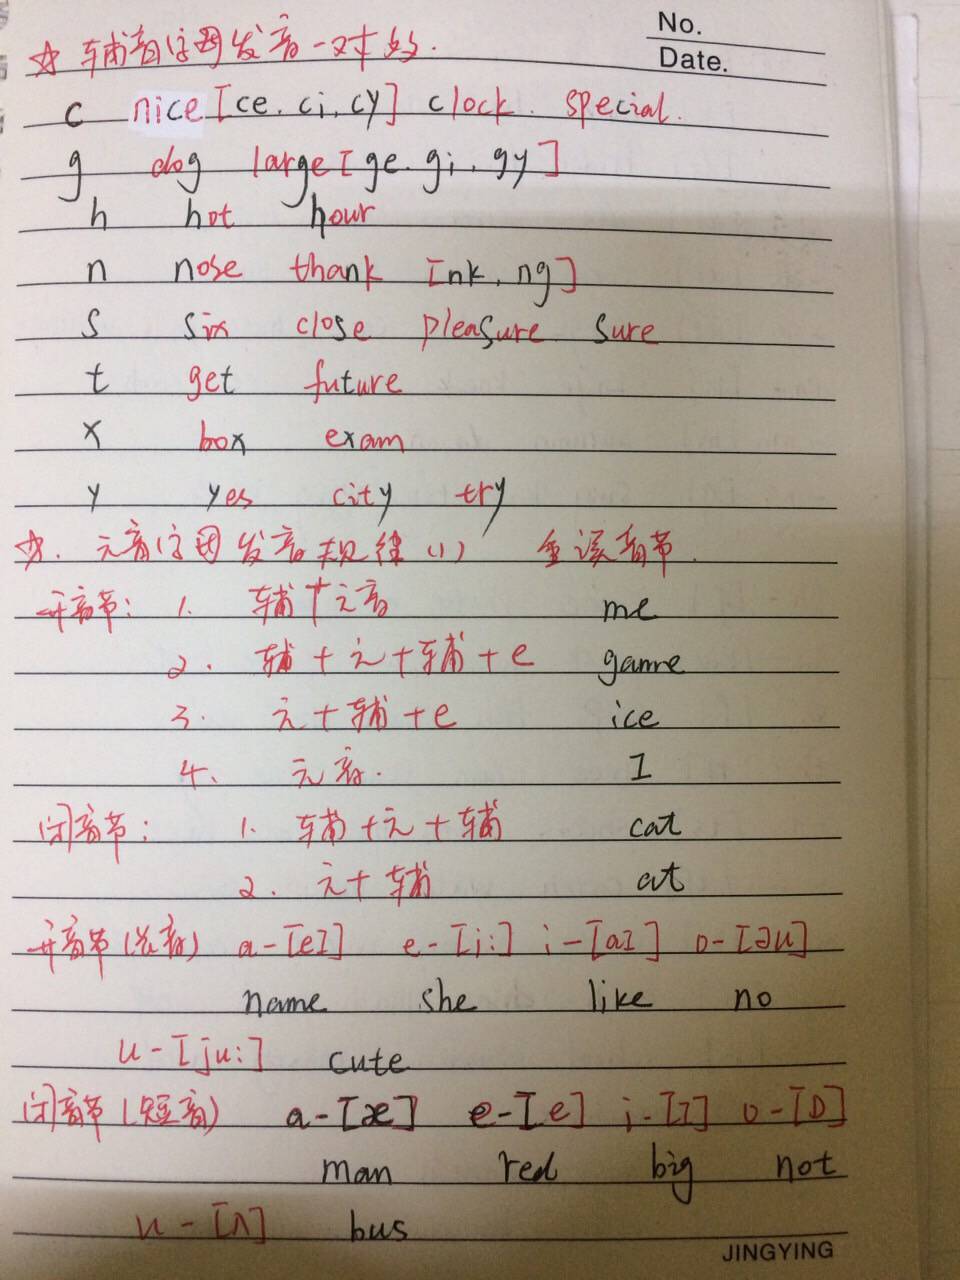 No.
Date.
☆ 辅音字母发音一对多.
c nice [ce. ci. cy] clock. special.
g dog large [ge. gi. gy]
h hot hour
n nose thank [nk, ng]
s six close pleasure sure
t get future
x box exam
y yes city try
☆. 元音字母发音规律(1) 重读音节.
开音节: 1. 辅+元音 me
2. 辅+元+辅+e game
3. 元+辅+e ice
4. 元音. I
闭音节: 1. 辅+元+辅 cat
2. 元+辅 at
开音节(长音) a-[eI] e-[i:] i-[aI] o-[əu]
name she like no
u-[ju:] cute
闭音节(短音) a-[æ] e-[e] i-[I] o-[ɒ]
man red big not
u-[ʌ] bus
JINGYING